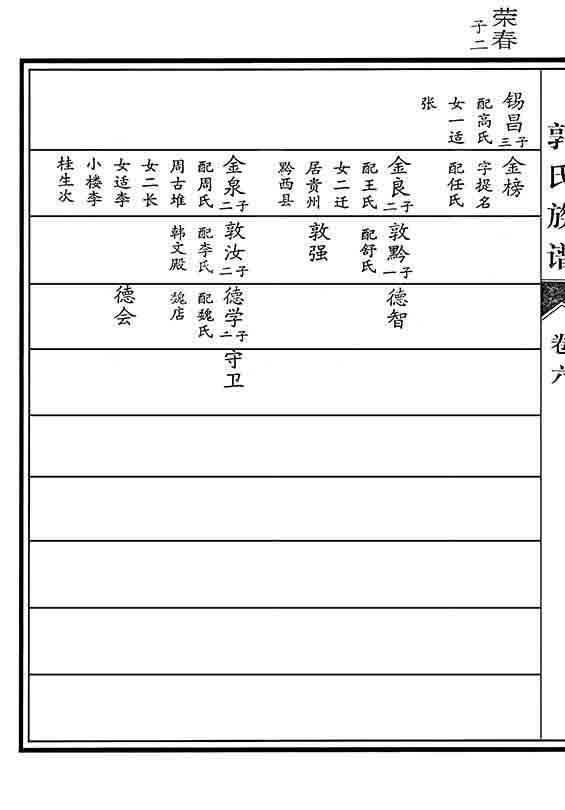 荣春
子二
郭氏族谱
卷六
锡昌
子三
配高氏
女一适
张
金榜
字提名
配任氏
金良
子二
配王氏
女二迁
居贵州
黔西县
金泉
子二
配周氏
周古堆
女二长
女适李
小楼李
桂生次
敦黔
子一
配舒氏
敦强
敦汝
子二
配李氏
韩文殿
德智
德学
子二
配魏氏
魏店
德会
守卫